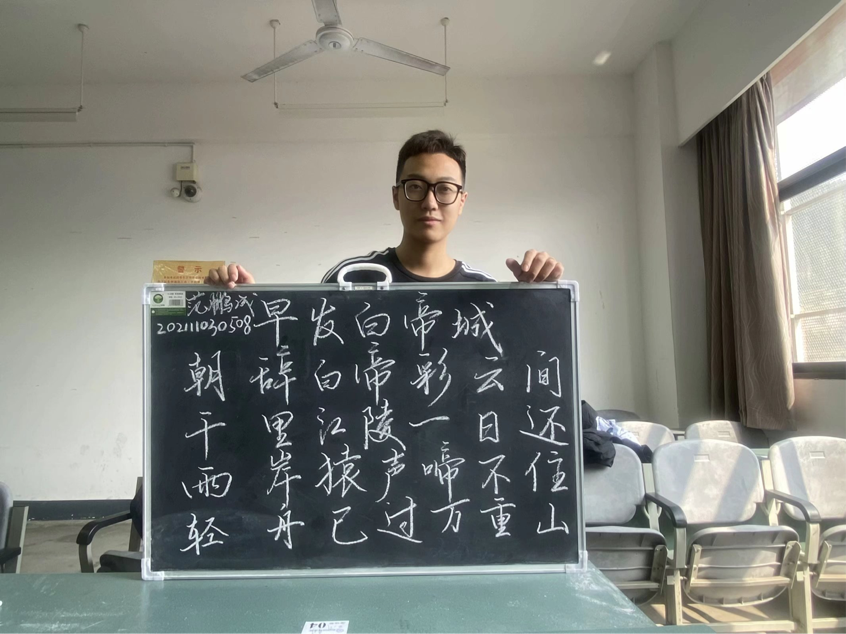 警示
范鹏成
202111030508
早发白帝城
朝辞白帝彩云间
千里江陵一日还
两岸猿声啼不住
轻舟已过万重山
04